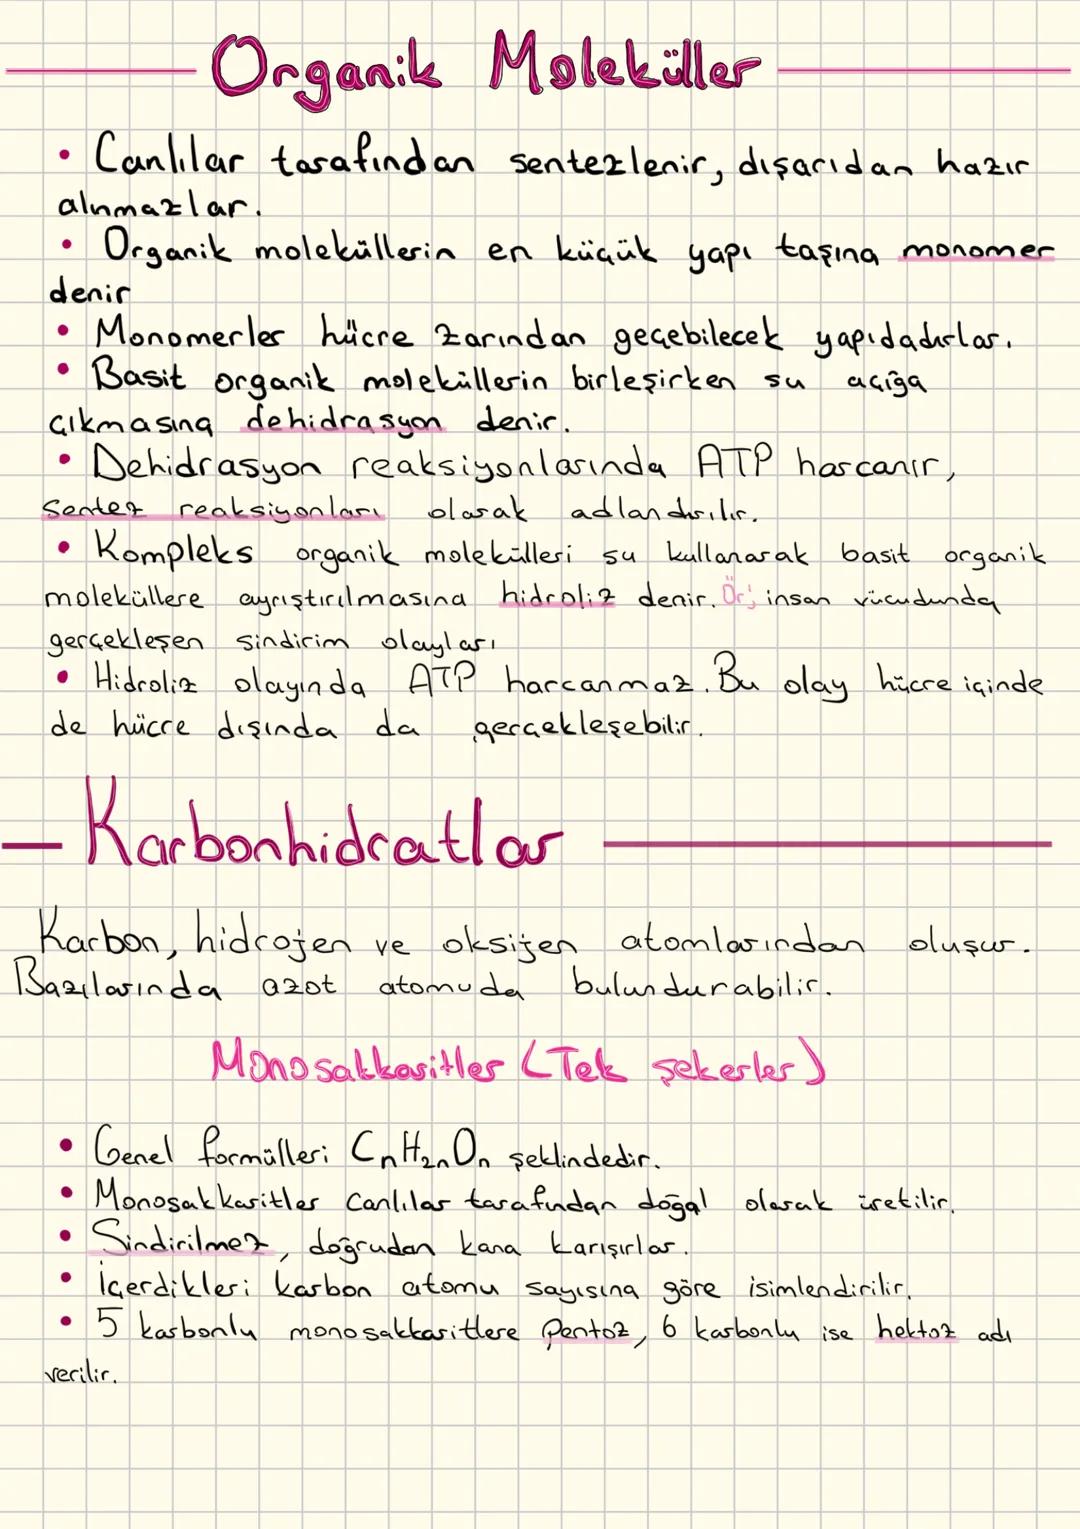 Organik Moleküller
• Canlılar tarafından sentezlenir, dışarıdan hazır
alınmazlar.
• Organik moleküllerin en küçük yapı taşına monomer
denir
• Monomerler hücre zarından geçebilecek yapıdadırlar.
• Basit organik moleküllerin birleşirken su açığa
çıkmasına dehidrasyon denir.
• Dehidrasyon reaksiyonlarında ATP harcanır,
sentez reaksiyonları olarak adlandırılır.
• Kompleks organik molekülleri su kullanarak basit organik
moleküllere ayrıştırılmasına hidroliz denir. Ör; insan vücudunda
gerçekleşen sindirim olayları
• Hidroliz olayında ATP harcanmaz. Bu olay hücre içinde
de hücre dışında da gerçekleşebilir.
Karbonhidratlar
Karbon, hidrojen ve oksijen atomlarından oluşur.
Bazılarında azot atomuda bulundurabilir.
Monosakkaritler (Tek şekerler)
• Genel formülleri CnH2nOn şeklindedir.
• Monosakkaritler canlılar tarafından doğal olarak üretilir.
• Sindirilmez, doğrudan kana karışırlar.
• İçerdikleri karbon atomu sayısına göre isimlendirilir.
• 5 karbonlu monosakkaritlere pentoz, 6 karbonlu ise hektoz adı
verilir.